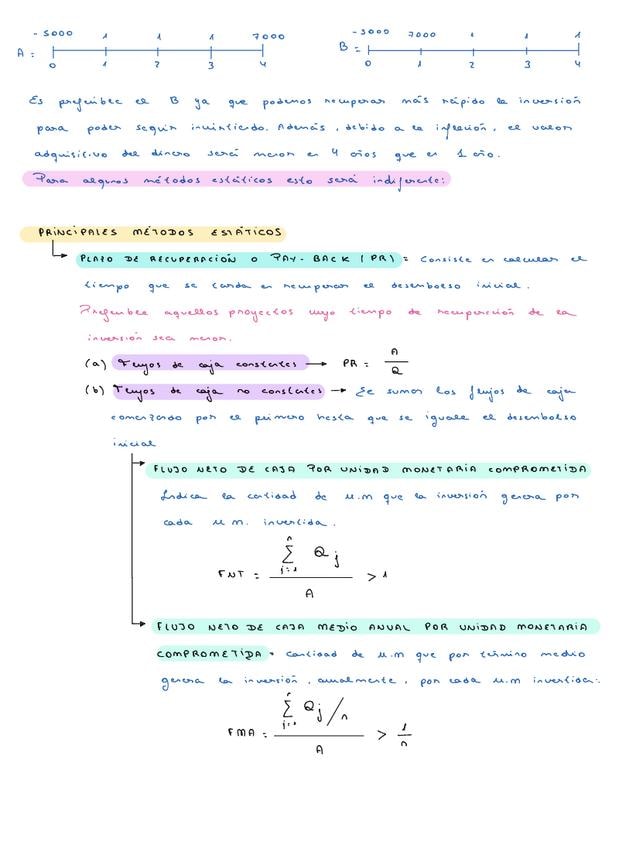 -5000 1 1 1 7000
A = 0 1 2 3 4
-5000 7000 1 1 1
B = 0 1 2 3 4
Es preferible el B ya que podemos recuperar más rápido la inversión
para poder seguir invirtiendo. Además, debido a la inflación, el valor
adquisitivo del dinero será menor en 4 años que en 1 año.
Para algunos métodos estáticos esto será indiferente:
PRINCIPALES MÉTODOS ESTÁTICOS
PLAZO DE RECUPERACIÓN O PAY-BACK (PR) = Consiste en calcular el
tiempo que se tarda en recuperar el desembolso inicial.
Preferible aquellos proyectos cuyo tiempo de recuperción de la
inversión sea menor.
(a) Flujos de caja constantes → PR = A / Q
(b) Flujos de caja no constantes → Se suman los flujos de caja
comenzando por el primero hasta que se iguale el desembolso
inicial
FLUJO NETO DE CAJA POR UNIDAD MONETARIA COMPROMETIDA
Indica la cantidad de u.m que la inversión genera por
cada u m. invertida.
FNT = n ∑ j=1 Qj / A > 1
FLUJO NETO DE CAJA MEDIO ANUAL POR UNIDAD MONETARIA
COMPROMETIDA = cantidad de u.m que por término medio
genera la inversión, anualmente, por cada u.m invertida:
FMA = n ∑ j=1 Qj/n / A > 1/n